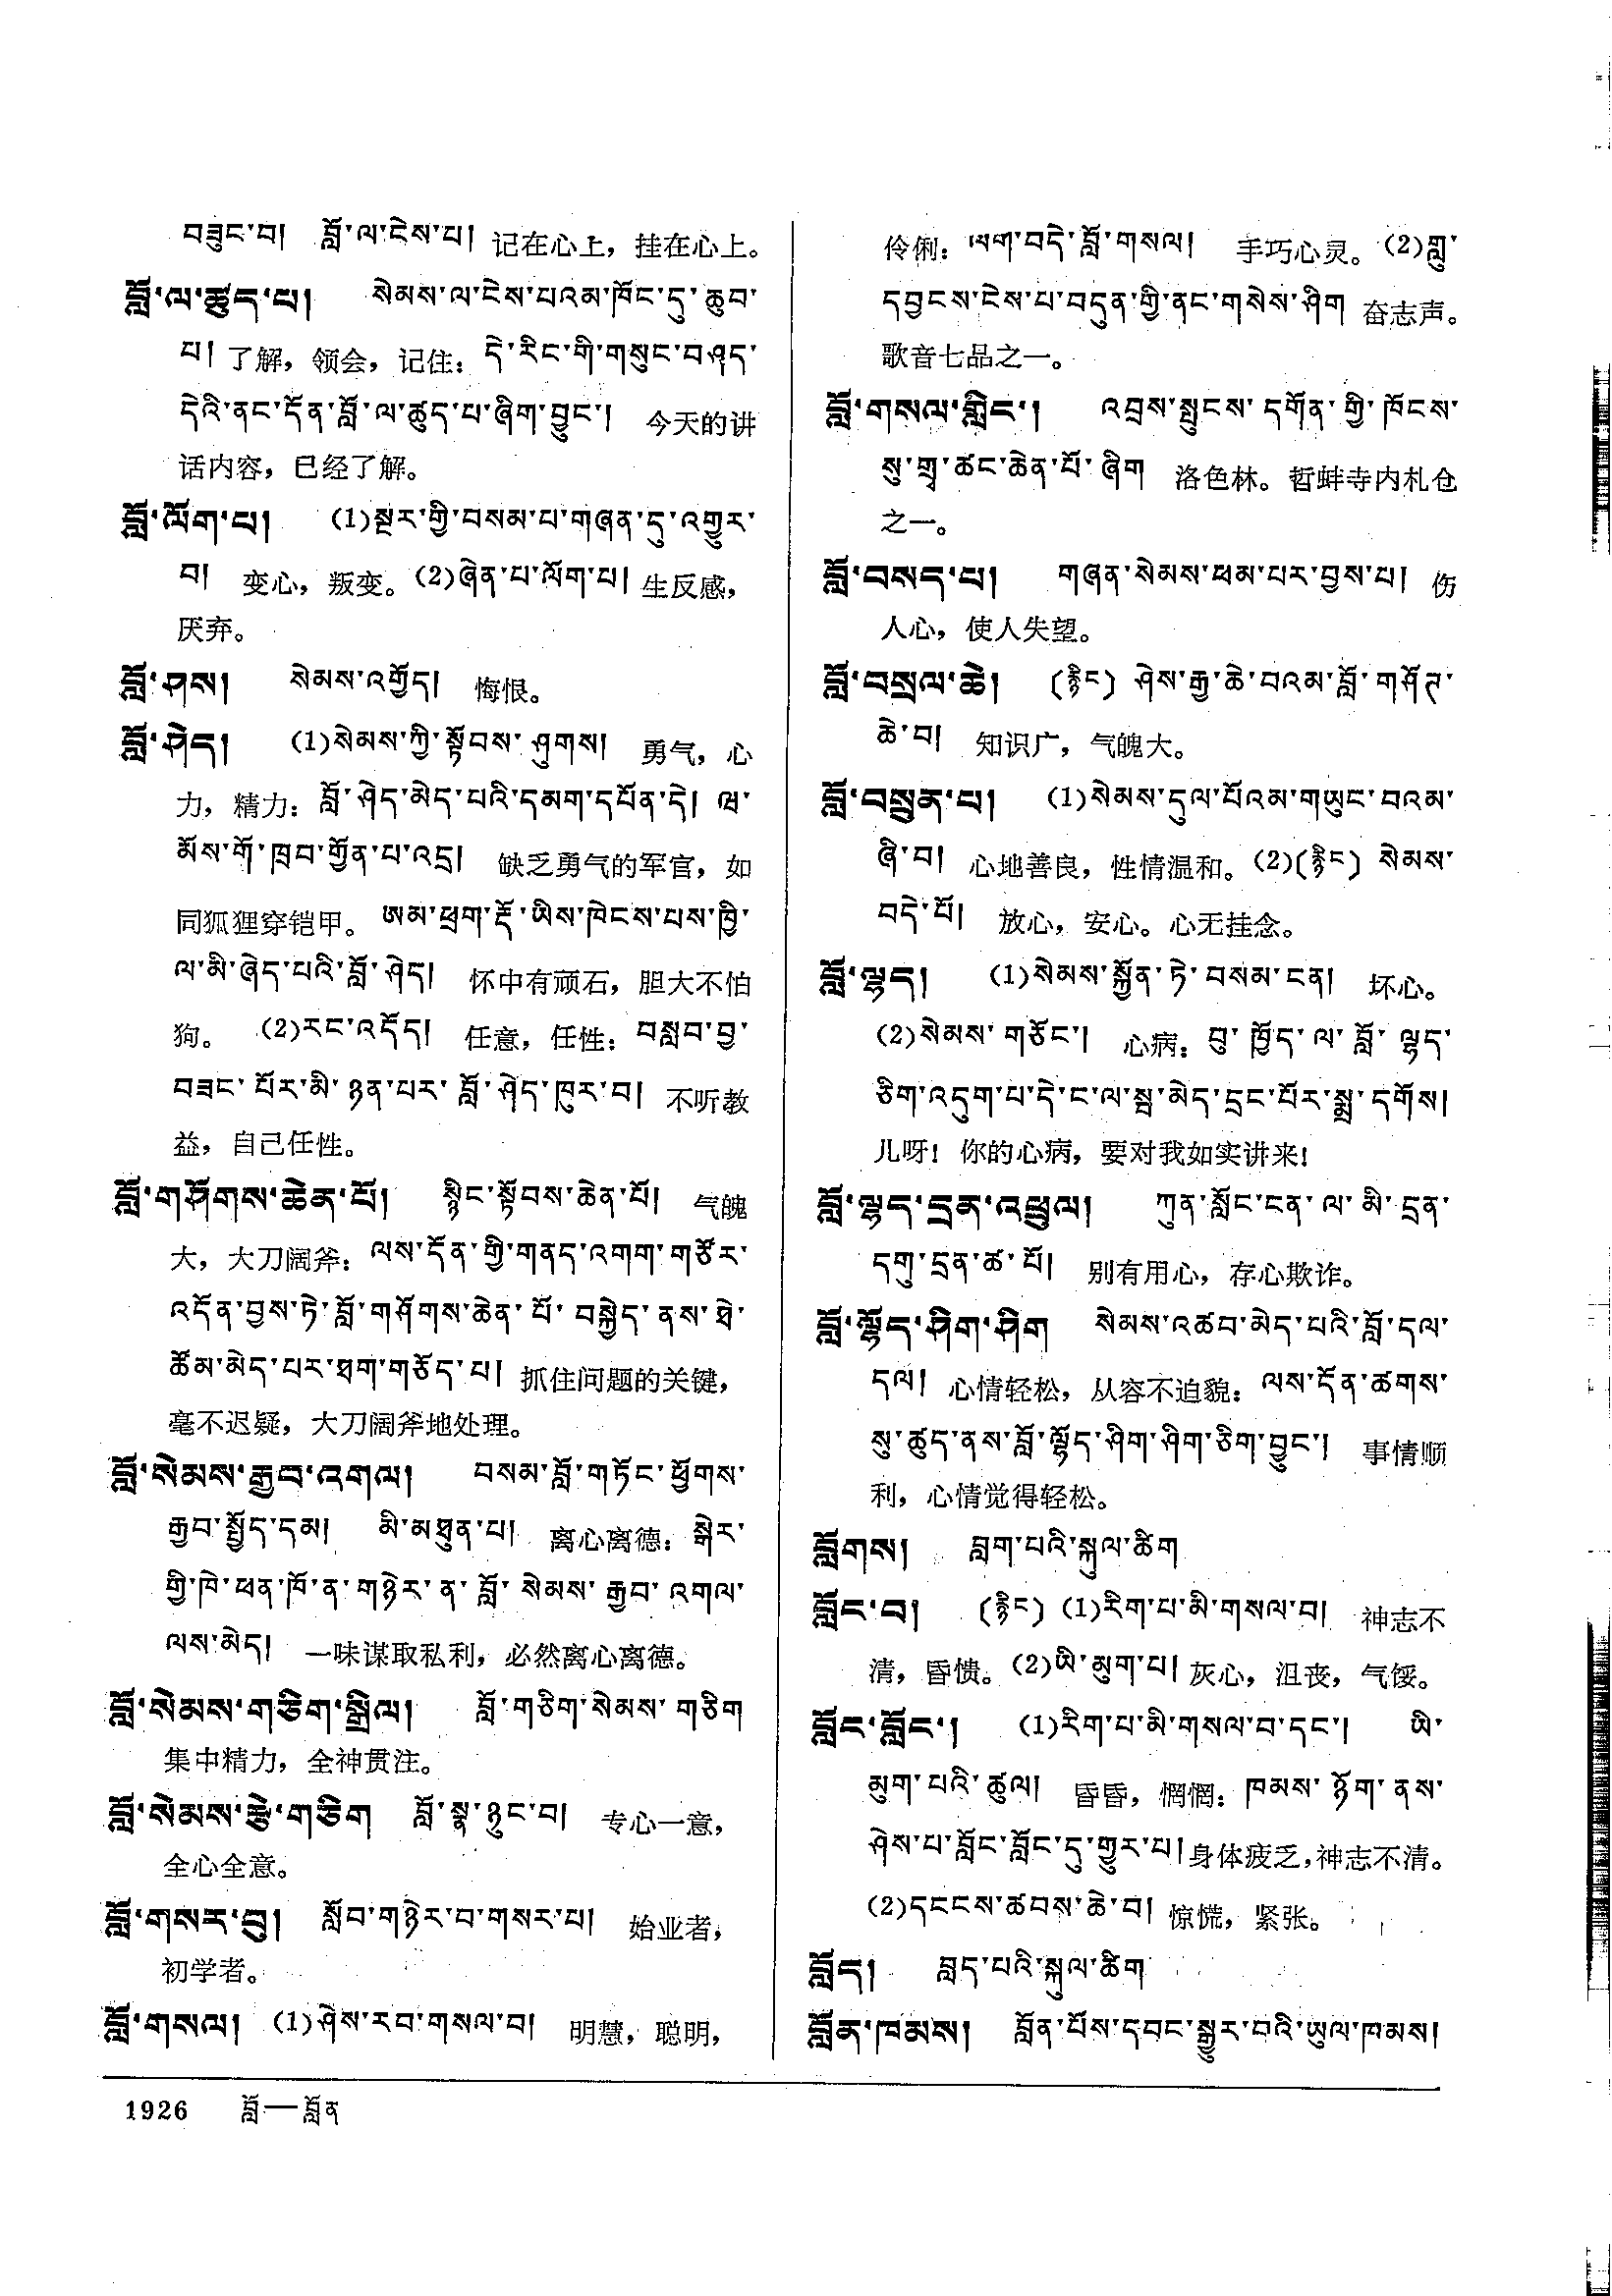 བཟུང་བ། བློ་ལ་ངེས་པ། 记在心上，挂在心上。
བློ་ལ་ཚུད་པ། སེམས་ལ་ངེས་པའམ་ཁོང་དུ་ཆུབ་
པ། 了解，领会，记住：དེ་རིང་གི་གསུང་བཤད་
དེའི་ནང་དོན་བློ་ལ་ཚུད་པ་ཞིག་བྱུང་། 今天的讲
话内容，已经了解。
བློ་ལོག་པ། (1)སྔར་གྱི་བསམ་པ་གཞན་དུ་འགྱུར་
བ། 变心，叛变。(2)ཞེན་པ་ལོག་པ། 生反感，
厌弃。
བློ་ཤས། སེམས་འགྱོད། 悔恨。
བློ་ཤེད། (1)སེམས་ཀྱི་སྟོབས་ཤུགས། 勇气，心
力，精力：བློ་ཤེད་མེད་པའི་དམག་དཔོན་དེ། ཝ་
མོས་གོ་ཁྲབ་གྱོན་པ་འདྲ། 缺乏勇气的军官，如
同狐狸穿铠甲。ཨམ་ཕྲག་རྡོ་ཡིས་ཁེངས་པས་ཁྱི་
ལ་མི་ཞེད་པའི་བློ་ཤེད། 怀中有顽石，胆大不怕
狗。 (2)རང་འདོད། 任意，任性：བསླབ་བྱ་
བཟང་པོར་མི་ཉན་པར་བློ་ཤེད་ཁུར་བ། 不听教
益，自己任性。
བློ་གཤོགས་ཆེན་པོ། སྙིང་སྟོབས་ཆེན་པོ། 气魄
大，大刀阔斧：ལས་དོན་གྱི་གནད་འགག་གཙོར་
འདོན་བྱས་ཏེ་བློ་གཤོགས་ཆེན་པོ་བསྐྱེད་ནས་ཐེ་
ཚོམ་མེད་པར་ཐག་གཅོད་པ། 抓住问题的关键，
毫不迟疑，大刀阔斧地处理。
བློ་སེམས་རྒྱབ་འགལ། བསམ་བློ་གཏོང་ཕྱོགས་
རྒྱབ་སྤྲོད་དམ། མི་མཐུན་པ། 离心离德：སྒེར་
གྱི་ཁེ་ཕན་ཁོ་ན་གཉེར་ན་བློ་སེམས་རྒྱབ་འགལ་
ལས་མེད། 一味谋取私利，必然离心离德。
བློ་སེམས་གཅིག་སྒྲིལ། བློ་གཅིག་སེམས་གཅིག
集中精力，全神贯注。
བློ་སེམས་རྩེ་གཅིག བློ་སྣ་ཉུང་བ། 专心一意，
全心全意。
བློ་གསར་བུ། སློབ་གཉེར་བ་གསར་པ། 始业者，
初学者。
བློ་གསལ། (1)ཤེས་རབ་གསལ་བ། 明慧，聪明，
伶俐：ལག་བདེ་བློ་གསལ། 手巧心灵。(2)གླུ་
དབྱངས་ངེས་པ་བདུན་གྱི་ནང་གསེས་ཤིག 奋志声。
歌音七品之一。
བློ་གསལ་གླིང་། འབྲས་སྤུངས་དགོན་གྱི་ཁོངས་
སུ་གྲྭ་ཚང་ཆེན་པོ་ཞིག 洛色林。哲蚌寺内札仓
之一。
བློ་བསད་པ། གཞན་སེམས་ཕམ་པར་བྱས་པ། 伤
人心，使人失望。
བློ་བསྲལ་ཆེ། (རྙིང) ཤེས་རྒྱ་ཆེ་བའམ་བློ་གཤོད་
ཆེ་བ། 知识广，气魄大。
བློ་བསྲུན་པ། (1)སེམས་དུལ་པོའམ་གཡུང་བའམ་
ཞི་བ། 心地善良，性情温和。(2)(རྙིང) སེམས་
བདེ་པོ། 放心，安心。心无挂念。
བློ་ལྷད། (1)སེམས་སྐྱོན་ཏེ་བསམ་ངན། 坏心。
(2)སེམས་གཅོང་། 心病：བུ་ཁྱོད་ལ་བློ་ལྷད་
ཅིག་འདུག་པ་དེ་ང་ལ་སྦ་མེད་དྲང་པོར་སྨྲ་དགོས།
儿呀！你的心病，要对我如实讲来！
བློ་ལྷད་དྲན་འཕྲུལ། ཀུན་སློང་ངན་ལ་མི་དྲན་
དགུ་དྲན་ཚ་པོ། 别有用心，存心欺诈。
བློ་ལྷོད་ཤིག་ཤིག སེམས་འཚབ་མེད་པའི་བློ་དལ་
དལ། 心情轻松，从容不迫貌：ལས་དོན་ཚགས་
སུ་ཚུད་ནས་བློ་ལྷོད་ཤིག་ཤིག་ཅིག་བྱུང་། 事情顺
利，心情觉得轻松。
བློགས། བླག་པའི་སྐུལ་ཚིག
བློང་བ། (རྙིང) (1)རིག་པ་མི་གསལ་བ། 神志不
清，昏愦。(2)ཡི་མུག་པ། 灰心，沮丧，气馁。
བློང་བློང་། (1)རིག་པ་མི་གསལ་བ་དང་། ཡི་
མུག་པའི་ཚུལ། 昏昏，惘惘：ཁམས་ཉོག་ནས་
ཤེས་པ་བློང་བློང་དུ་གྱུར་པ། 身体疲乏，神志不清。
(2)དངངས་ཚབས་ཆེ་བ། 惊慌，紧张。
བློད། བླད་པའི་སྐུལ་ཚིག
བློན་ཁམས། བློན་པོས་དབང་སྒྱུར་བའི་ཡུལ་ཁམས།
1926 བློ—བློན